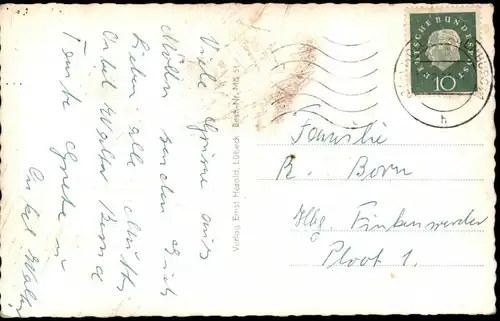 Viele Grüsse aus
Mölln senden Dir
Lieben alle Mutti
Onkel Walter Bernd
Tante Grete u
Onkel Walter
Verlag Ernst Herold, Lübeck Best.-Nr. Mö 51
DEUTSCHE BUNDESPOST
10
h
Familie
R. Born
Hbg. Finkenwerder
Ploot 1.